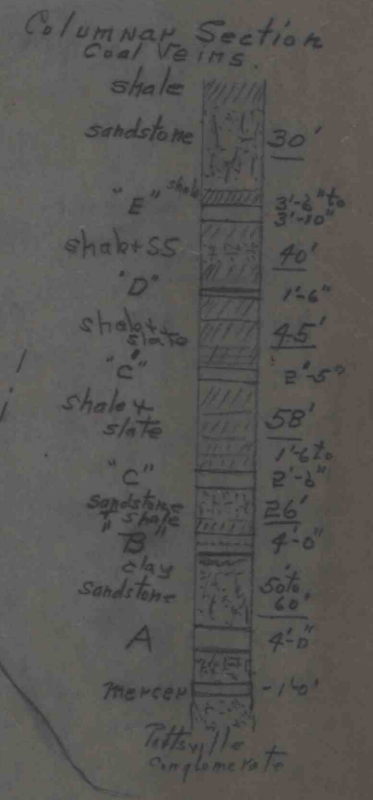 Columnar Section
Coal Veins.
shale
sandstone 30'
shale
"E" 3'-6" to
3'-10"
shale+SS 40'
"D" 1'-6"
shale+
slate 45'
"C'" 2'-5"
shale+
slate 58'
1'-6 to
"C" 2'-6"
sandstone 26'
" shale
"B" 4'-0"
clay
sandstone 50 to
60'
A 4'-0"
mercer -1'0'
Pottsville
Conglomerate